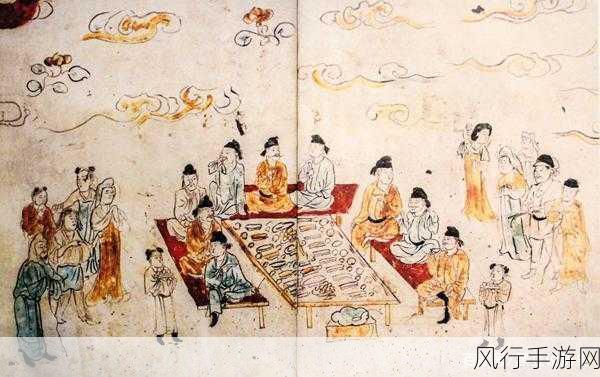 风行手游网